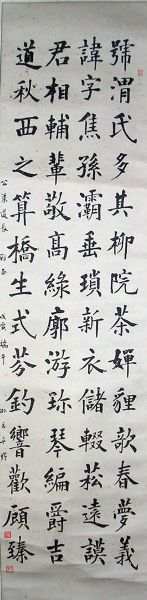 號渭氏多其柳院茶嬋貍歌春夢義
諱字焦孫灞垂瑣新衣儲輟菘遠謨
君相輔輩敬高綠廓游珎琴編爵吉
道秋西之算橋生式芬釣響歡顧臻